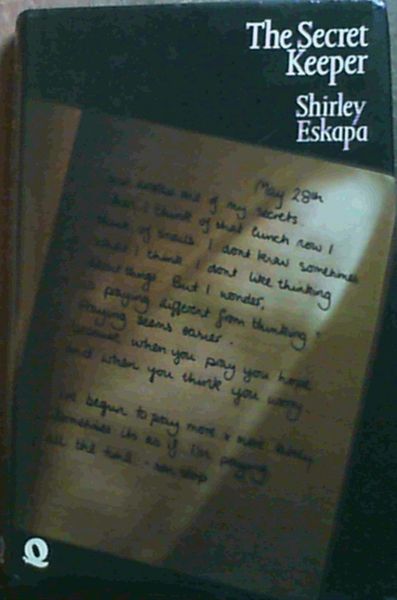 The Secret
Keeper
Shirley
Eskapa
May 28th
one of my secrets.
I think of that lunch now I
think of snails I dont know sometimes
what I think. I dont like thinking
about things. But I wonder,
is praying different from thinking?
Praying seems easier.
because when you pray you hope
and when you think you worry
I've begun to pray more & more lately
Sometimes its as if I'm praying
all the time - non stop
Q